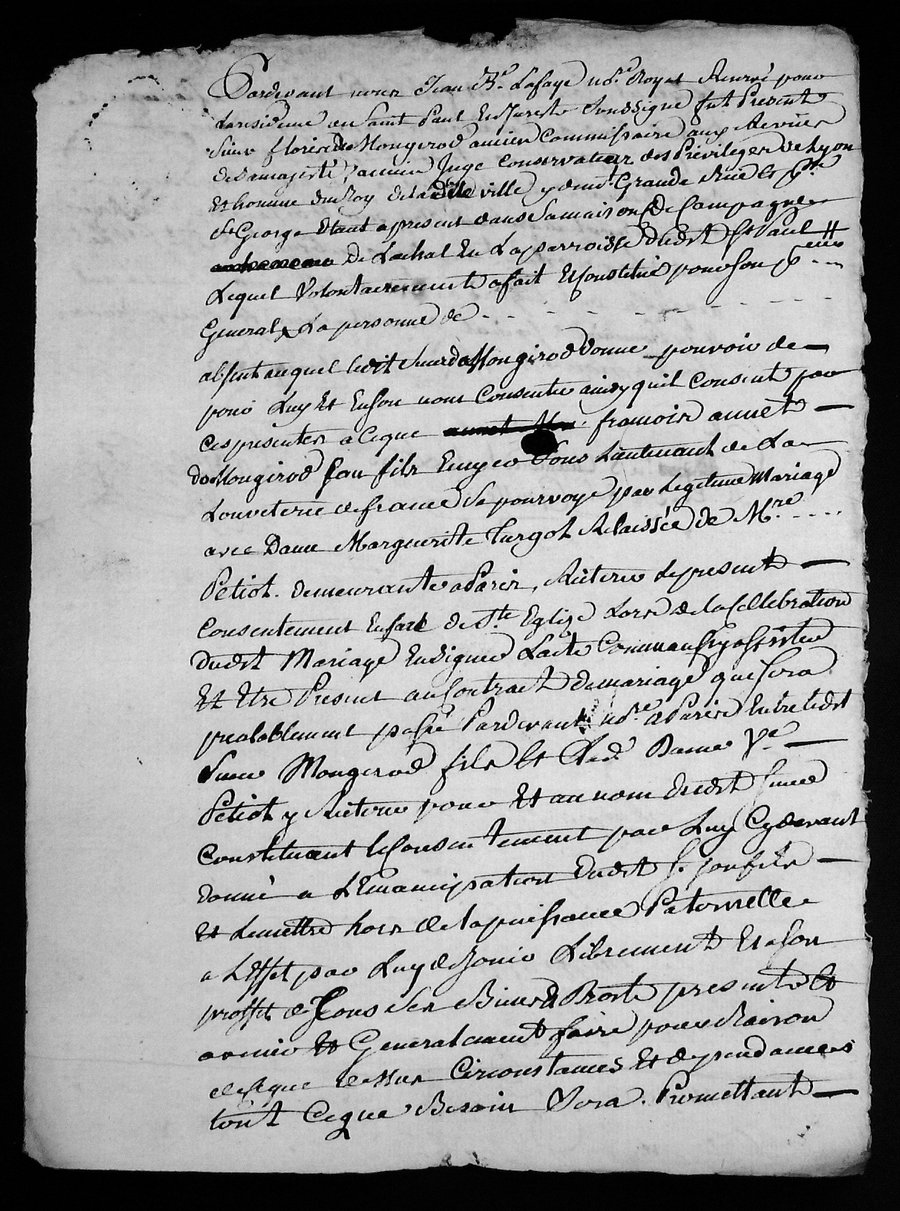 Pardevant nous Jean Bte Lafaye nore Royal Reservé pour
La residence de Saint Paul En Jarest Soussigné fut Present
Sieur floris De Mongirod ancien Commissaire aux Revües
de Sa majesté, ancien Juge Conservateur des Privileges de Lyon
Et homme du Roy de la de ville y demt. Grande Rüe Et Psse
St George Etant a present dans Sa maison de Campagne
de Lachal En La parroisse Dudit St Paul
Lequel Volontairement a fait Et Constitué pour Son
General La personne de
absent auquel Ledit Sieur de Mongirod donne pouvoir de
pour Luy Et En Son nom Consentir ainsy quil Consent par
Ces presentes a Ceque francois annet
de Mongirod Son fils Ecuyer Sous Lieutenant de La
Louveterie de france Se pourvoye par Legitime Mariage
avec Dame Marguerite Turgot Relaissée de Mre
Petiot demeurante a Paris, Reiterer le present
Consentement En face de Ste Eglise Lors de la Cellebration
Dudit Mariage En Signer L'acte Comme aussy assister
Et Etre Present au Contract de mariage qui Sera
probablement passé Pardevant nore a Paris Entre Ledit
Sieur Mongirod fils Et Lad. Dame Ve
Petiot y Reiterer pour Et au nom Dudit Sieur
Constituant le Consentement par Luy Cydevant
Donné a L'Emancipation Dudit Sr. Son fils
Et Le mettre hors de la puissance Paternelle
a L'Effet par Luy de Jouir Librement Et a Son
proffit de Tous Ses Biens Et Droits presents Et
avenir Et Generalement faire pour Raison
de Ceque dessus Circonstances Et dependances
tout Ceque Besoin Sera. Promettant